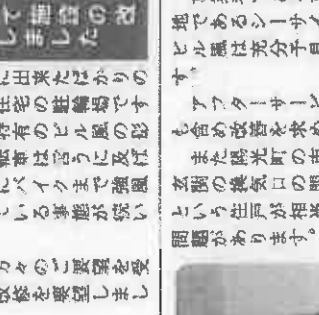 て施設の改
しました
に出来たばかりの
住宅の駐輪場です
特有のビル風の影
転車は言うに及ば
にバイクまで強風
ている事態が続い
方々のご要望を受
改修を要望しまし
地であるシーサイ
ビル風は充分予見
す。
アフターサービ
も含め改善を求め
また陽光町の市
玄関の換気口の
という
問題があります。